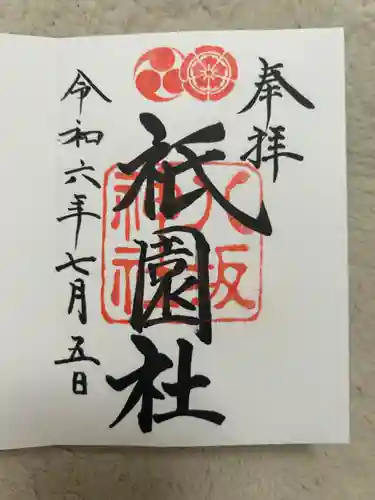 奉拝
祇園社
八坂
神社
令和六年七月五日